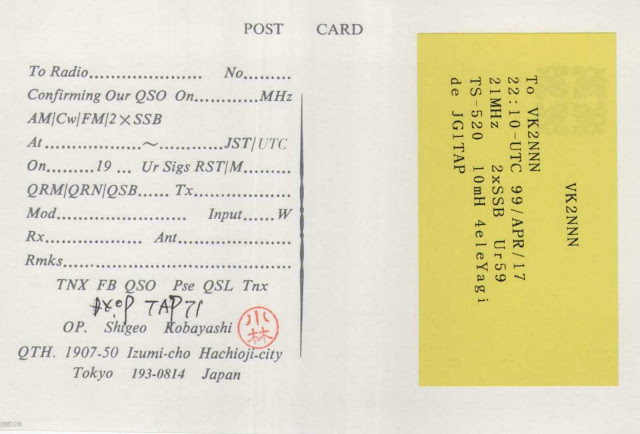 POST CARD
To Radio...................... No.........
Confirming Our QSO On..........MHz
AM|Cw|FM|2×SSB
At....................~.............JST|UTC
On..........19 ... Ur Sigs RST|M.........
QRM|QRN|QSB...... Tx...................
Mod......................... Input......W
Rx................... Ant.......................
Rmks............................................
TNX FB QSO Pse QSL Tnx
TAP71
OP. Shigeo Kobayashi
小林
QTH. 1907-50 Izumi-cho Hachioji-city
Tokyo 193-0814 Japan
VK2NNN
To VK2NNN
22:10-UTC 99/APR/17
21MHz 2xSSB Ur59
TS-520 10mH 4eleYagi
de JG1TAP